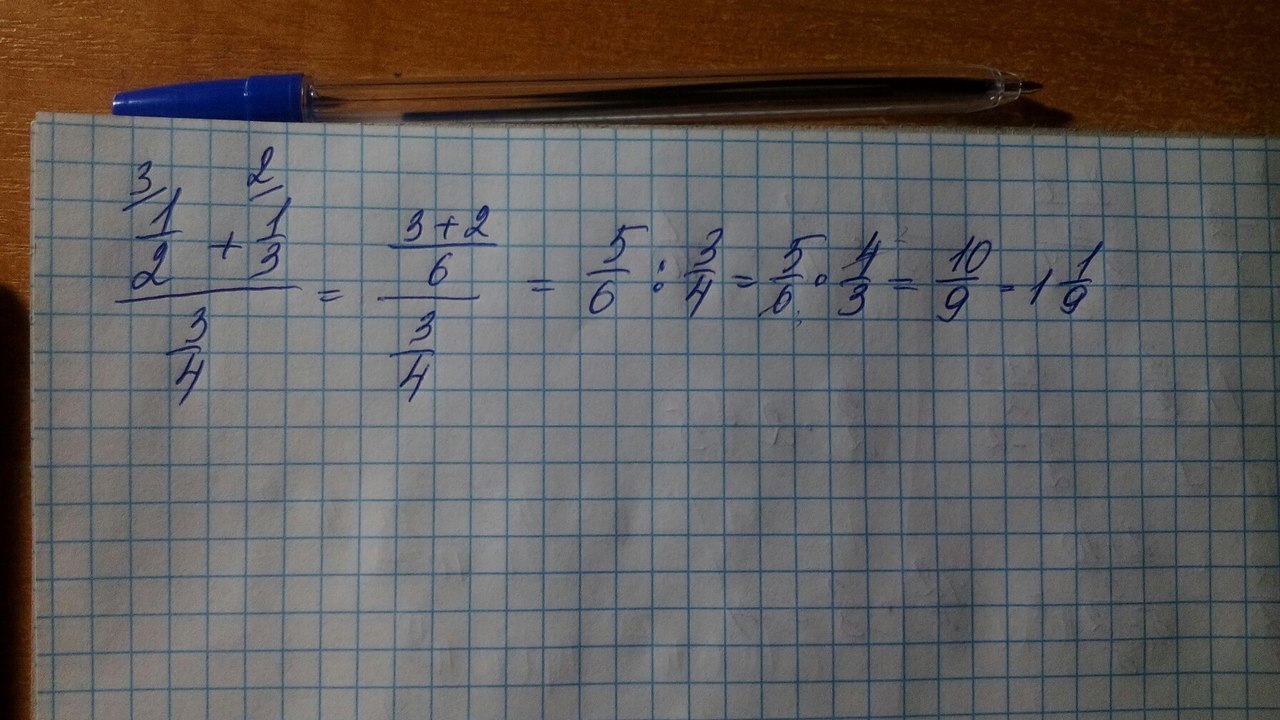 3/ 2/
(1/2 + 1/3)/(3/4) = ((3+2)/6)/(3/4) = 5/6 : 3/4 = 5/6 · 4/3 = 10/9 - 1 1/9